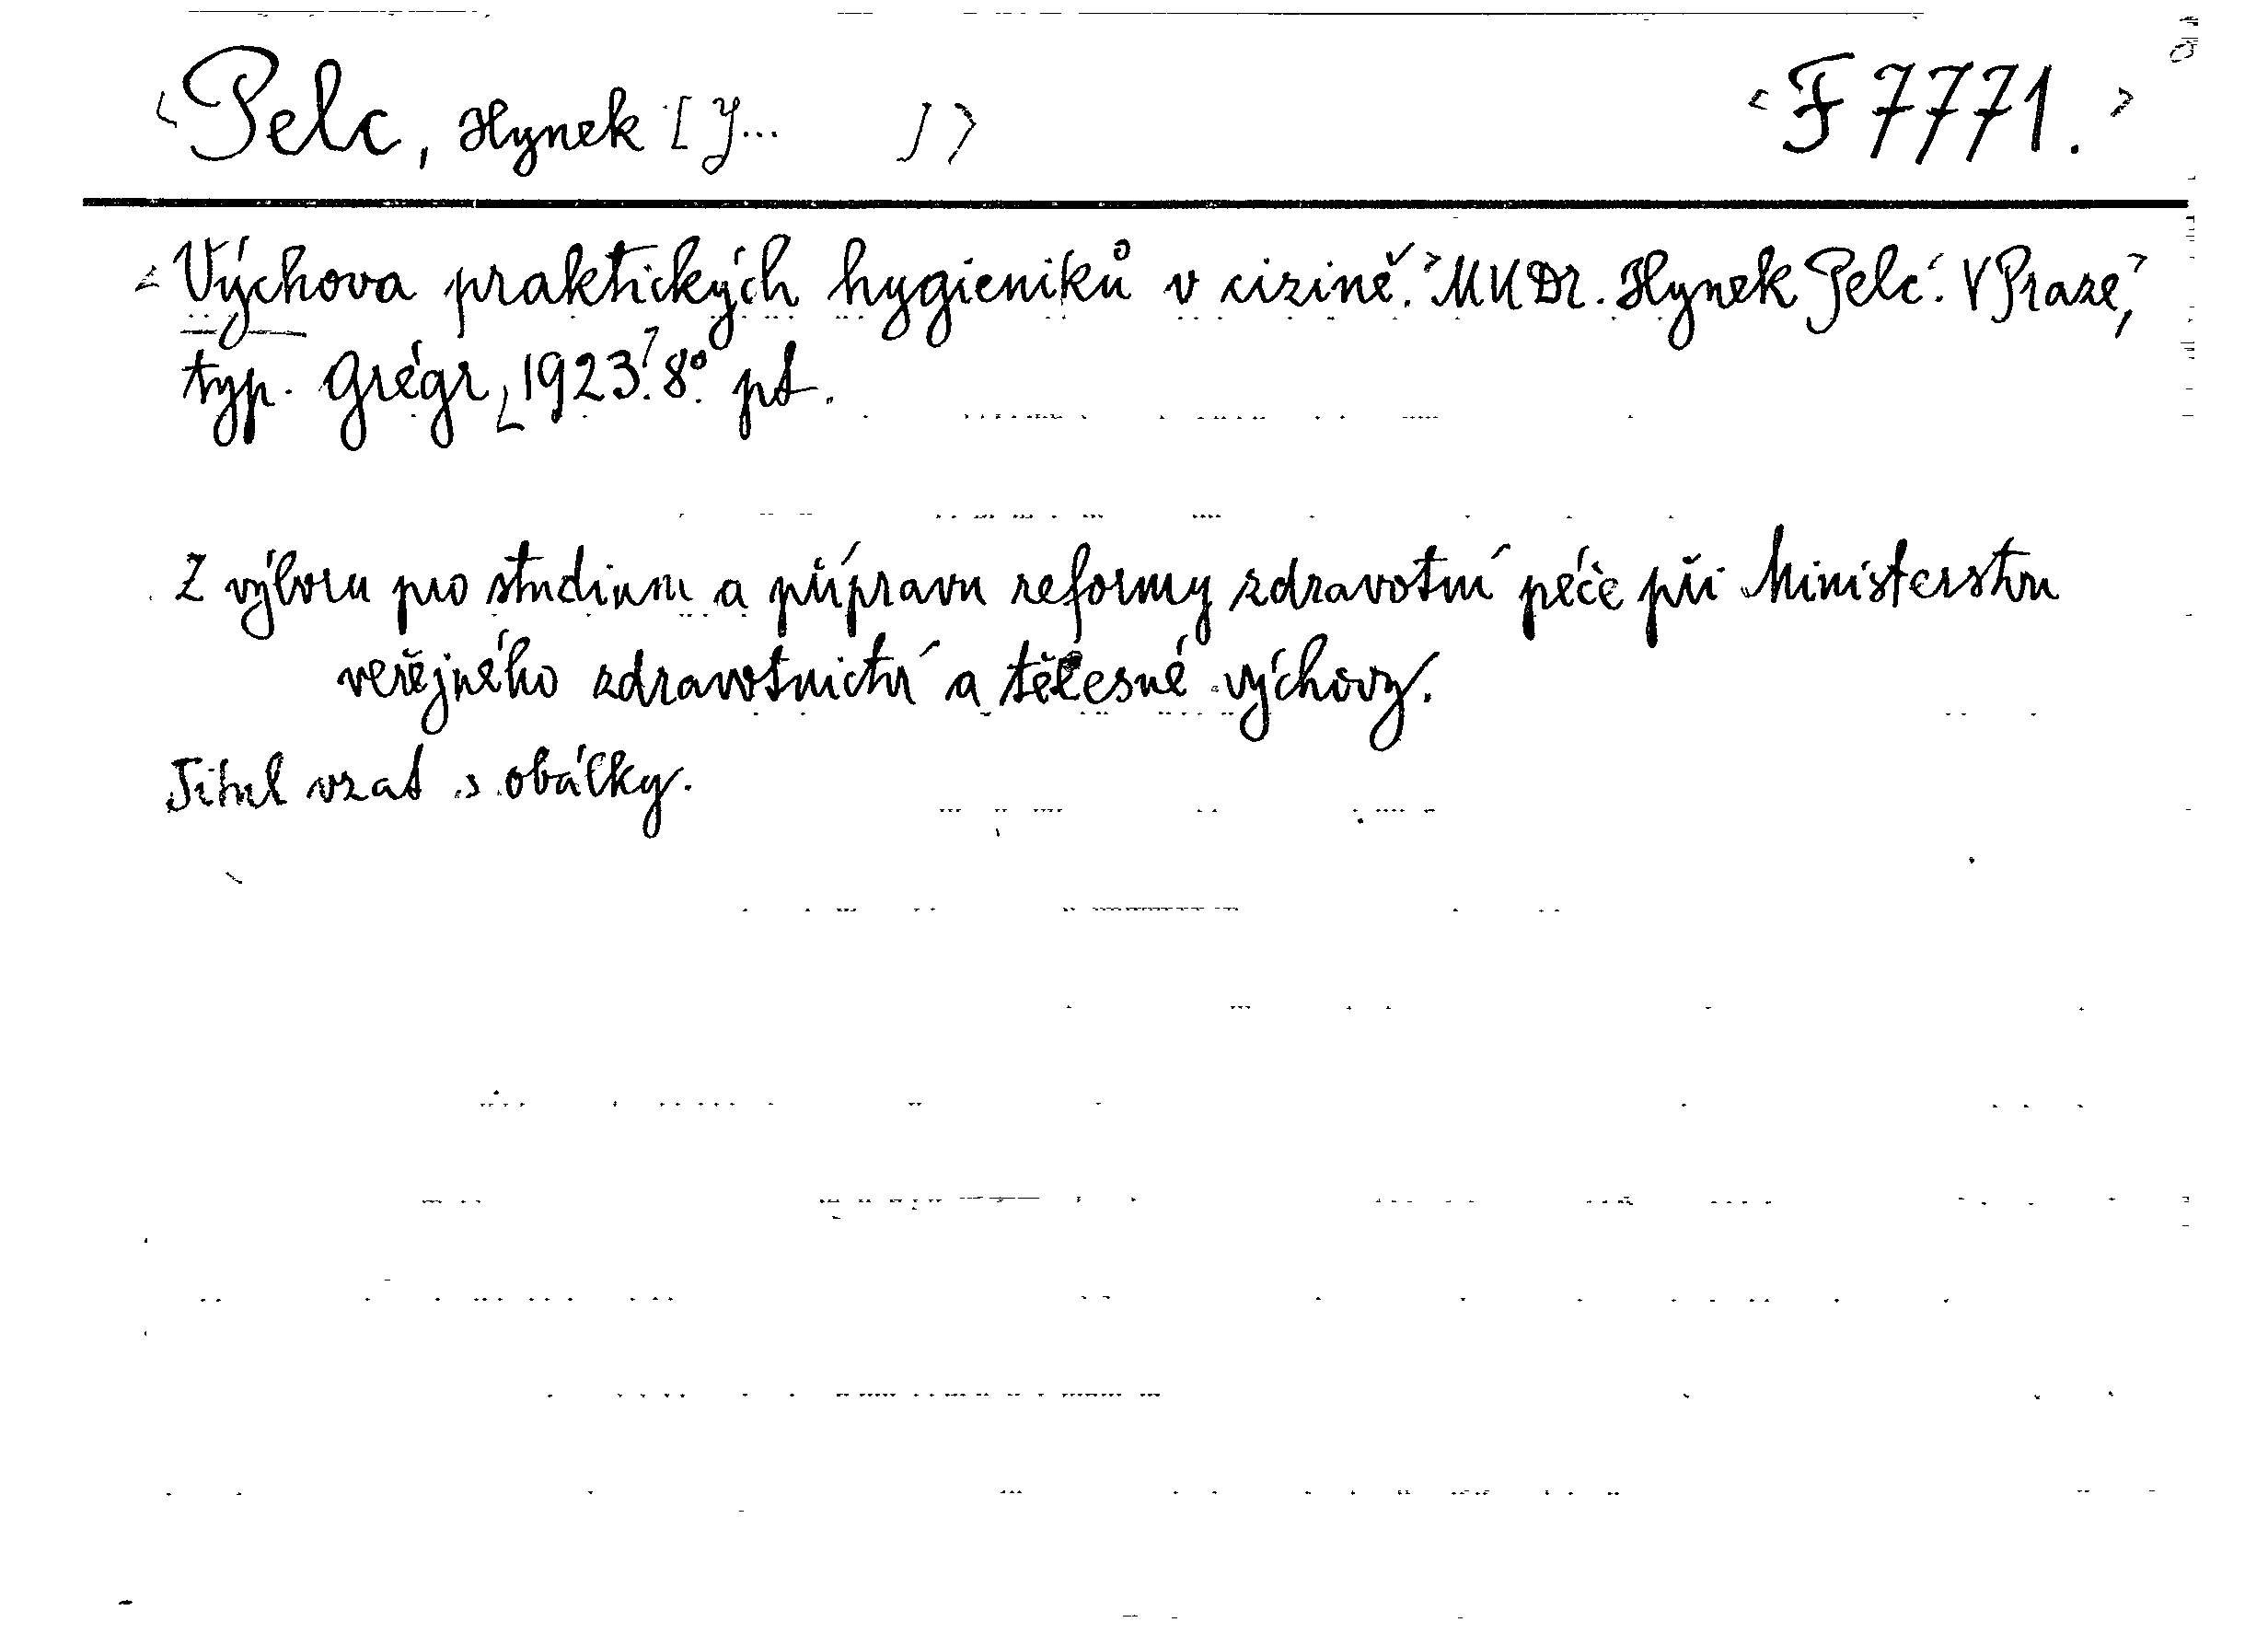 <Pelc, Hynek [J... ]> <F 7771.>
<Výchova praktických hygieniků v cizině.> MUDr. Hynek Pelc. V Praze,
typ. Grégr, <1923.> 8°. pt.
Z výboru pro studium a přípravu reformy zdravotní péče při Ministerstvu
veřejného zdravotnictví a tělesné výchovy.
Titul vzat s obálky.